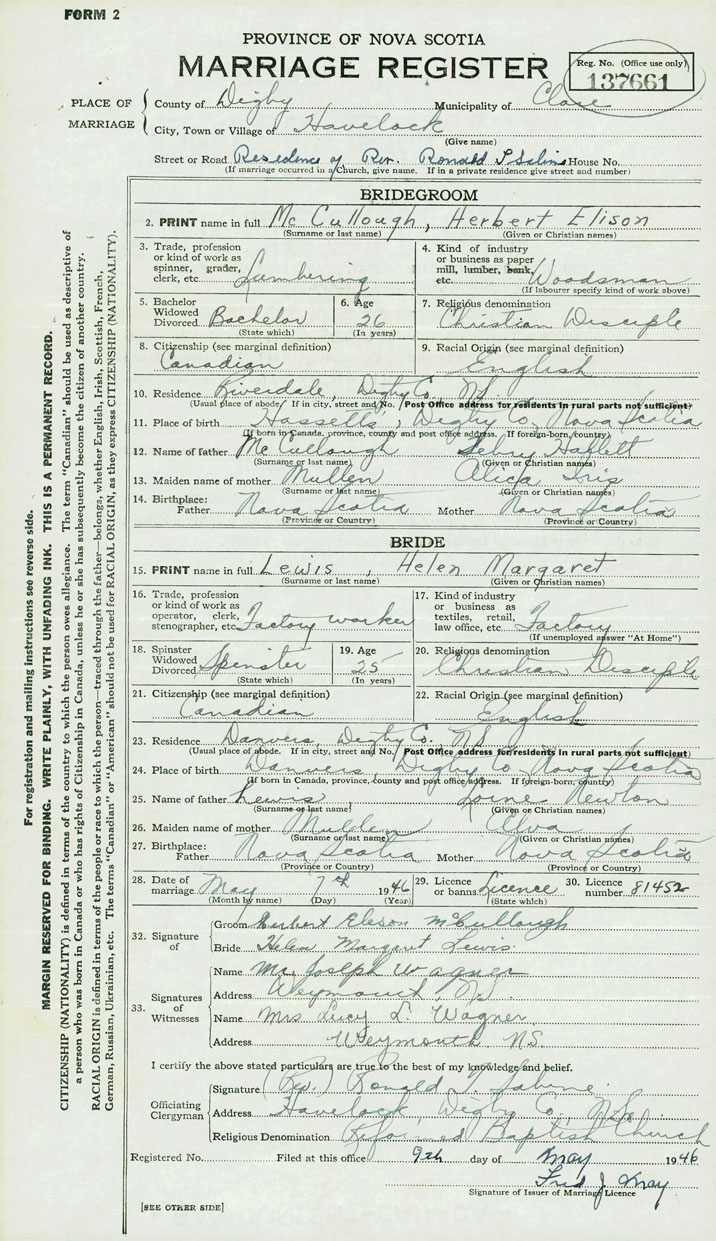 FORM 2
PROVINCE OF NOVA SCOTIA
MARRIAGE REGISTER
Reg. No. (Office use only)
137661
PLACE OF MARRIAGE
County of Digby Municipality of Clare
City, Town or Village of Havelock
(Give name)
Street or Road Residence of Rev. Ronald House No.
(If marriage occurred in a Church, give name. If in a private residence give street and number)
BRIDEGROOM
2. PRINT name in full McCullough, Herbert Elison
(Surname or last name) (Given or Christian names)
3. Trade, profession or kind of work as spinner, grader, clerk, etc. Lumbering
4. Kind of industry or business as paper mill, lumber, bank, etc. Woodsman
(If labourer specify kind of work above)
5. Bachelor Widowed Divorced Bachelor
(State which)
6. Age 26
(In years)
7. Religious denomination
Christian Disciple
8. Citizenship (see marginal definition)
Canadian
9. Racial Origin (see marginal definition)
English
10. Residence Riverdale, Digby Co. N.S.
(Usual place of abode. If in city, street and No. Post Office address for residents in rural parts not sufficient)
11. Place of birth Hassetts, Digby Co, Nova Scotia
(If born in Canada, province, county and post office address. If foreign-born, country)
12. Name of father McCullough
(Surname or last name) (Given or Christian names)
13. Maiden name of mother Mullen Alicia Iris
(Surname or last name) (Given or Christian names)
14. Birthplace: Father Nova Scotia Mother Nova Scotia
(Province or Country) (Province or Country)
BRIDE
15. PRINT name in full Lewis, Helen Margaret
(Surname or last name) (Given or Christian names)
16. Trade, profession or kind of work as operator, clerk, stenographer, etc. Factory worker
17. Kind of industry or business as textiles, retail, law office, etc. Factory
(If unemployed answer "At Home")
18. Spinster Widowed Divorced Spinster
(State which)
19. Age 25
(In years)
20. Religious denomination
Christian Disciple
21. Citizenship (see marginal definition)
Canadian
22. Racial Origin (see marginal definition)
English
23. Residence Danvers, Digby Co. N.S.
(Usual place of abode. If in city, street and No. Post Office address for residents in rural parts not sufficient)
24. Place of birth Danvers, Digby Co, Nova Scotia
(If born in Canada, province, county and post office address. If foreign-born, country)
25. Name of father Lewis Newton
(Surname or last name) (Given or Christian names)
26. Maiden name of mother Mullen Elva
(Surname or last name) (Given or Christian names)
27. Birthplace: Father Nova Scotia Mother Nova Scotia
(Province or Country) (Province or Country)
28. Date of marriage May 7th 1946
(Month by name) (Day) (Year)
29. Licence or banns Licence
(State which)
30. Licence number 81452
32. Signature of
Groom Herbert Eleson McCullough
Bride Helen Margaret Lewis
33. Signatures of Witnesses
Name Mr. Joseph Wagner
Address Weymouth N.S
Name Mrs Lucy L. Wagner
Address Weymouth N.S.
I certify the above stated particulars are true to the best of my knowledge and belief.
Officiating Clergyman
Signature (Rev.) Ronald Sabine
Address Havelock, Digby Co., N.S.
Religious Denomination Reformed Baptist Church
Registered No. Filed at this office 9th day of May 1946
Fred J
Signature of Issuer of Marriage Licence
[SEE OTHER SIDE]
For registration and mailing instructions see reverse side.
MARGIN RESERVED FOR BINDING. WRITE PLAINLY, WITH UNFADING INK. THIS IS A PERMANENT RECORD.
CITIZENSHIP (NATIONALITY) is defined in terms of the country to which the person owes allegiance. The term "Canadian" should be used as descriptive of
a person who was born in Canada or who has rights of Citizenship in Canada, unless he or she has subsequently become the citizen of another country.
RACIAL ORIGIN is defined in terms of the people or race to which the person—traced through the father—belongs, whether English, Irish, Scottish, French,
German, Russian, Ukrainian, etc. The terms "Canadian" or "American" should not be used for RACIAL ORIGIN, as they express CITIZENSHIP (NATIONALITY).